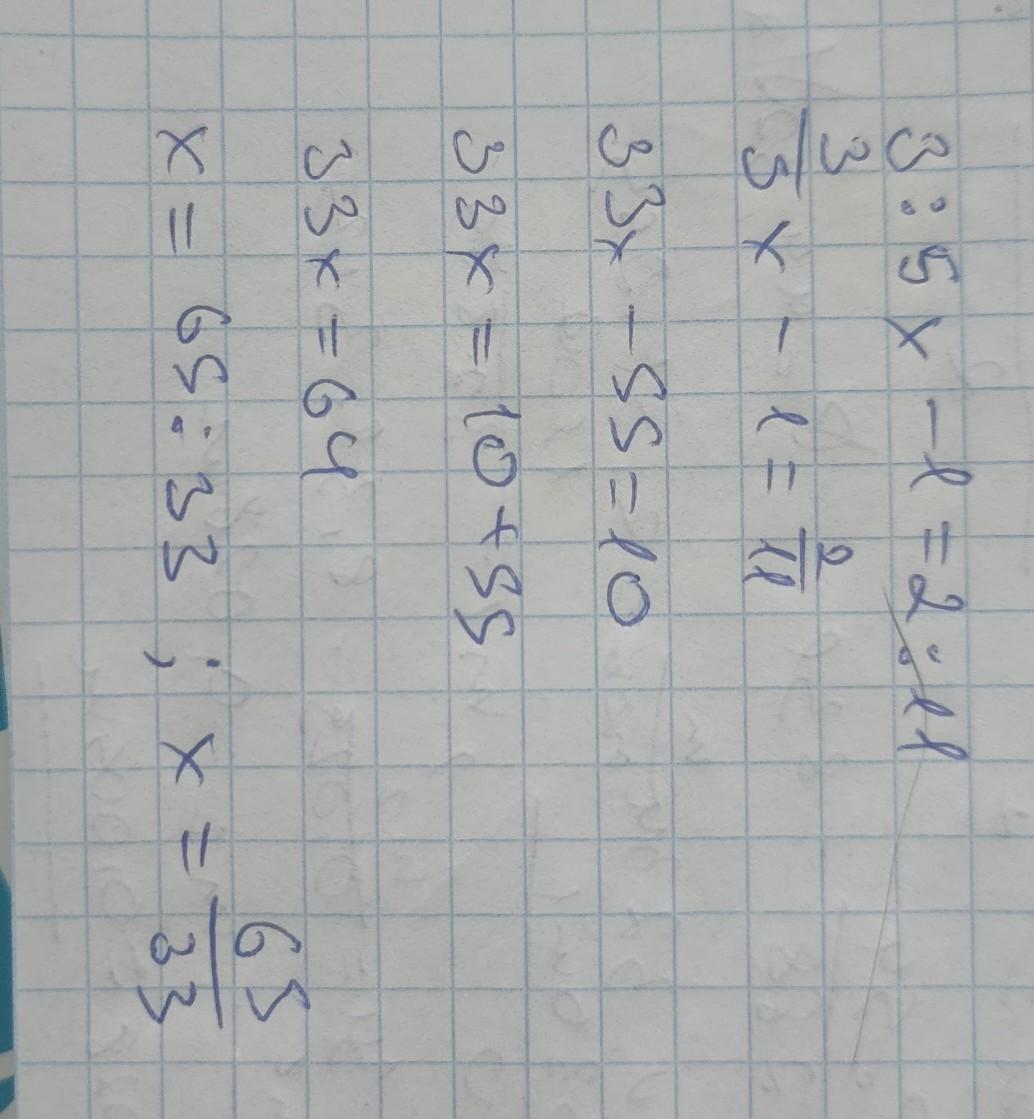 3:5x-1=2:11
3/5 x - 1 = 2/11
33x-55=10
33x=10+55
33x=64
x=65:33; x=65/33